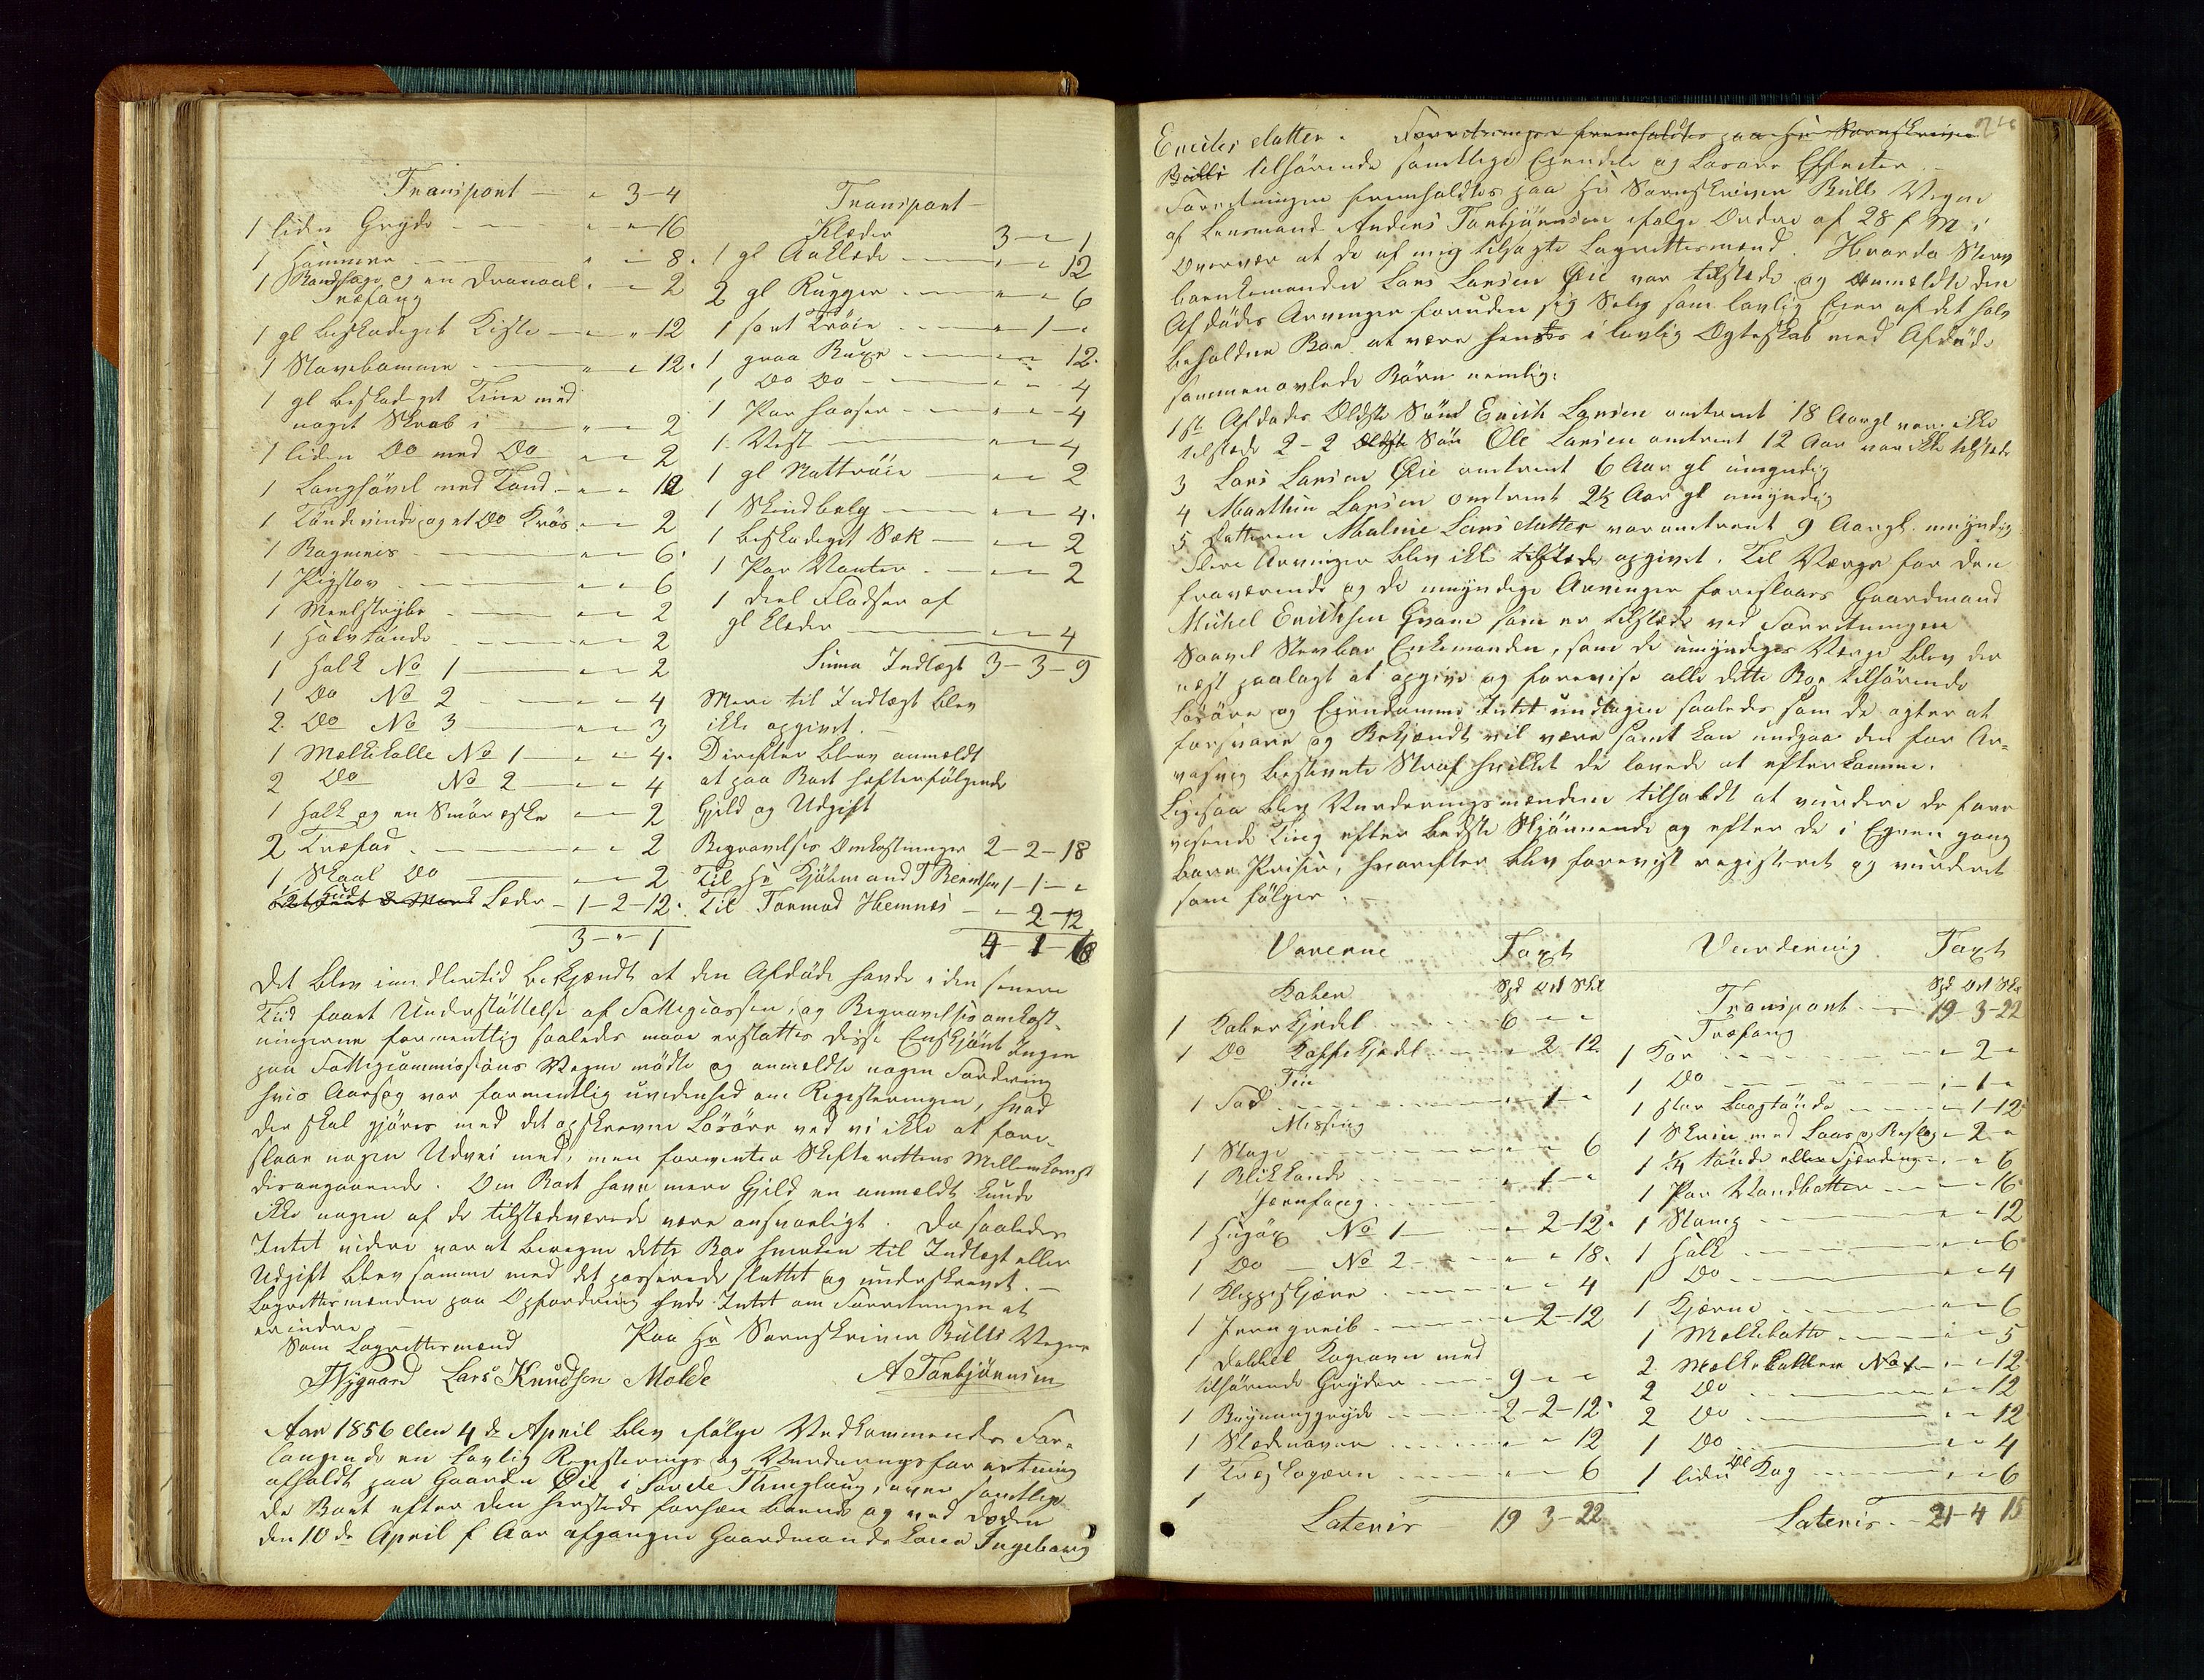 Transport — " 3-4
1 liden Gryde — " " 16
1 Hammer — " " 8.
1 Baandsage og en Dravaal " " 2
Træfang
1 gl beskadiget Kiste — " " 12
1 Stavebomme — " " 12.
1 gl beskadiget Tine med
noget Skrab i — " " 2
1 liden Do med Do " " 2
1 Langhövel med Tand " " 12
1 Töndevinde og et Do Krös " " 2
1 " " 6.
1 Pigstav " " 6
1 Meelstrybe " " 2
1 Halvtönde " " 2
1 Halk No 1 — " " 2
1 Do No 2 " " 4
2 Do No 3 " " 3
1 Melkekolle No 1 — " " 4.
2 Do No 2 — " " 4
1 Halk og en Smöræske " " 2
2 Træfad " " 2
1 Skaal Do " " 2
Læder - 1-2-12.
3 - " - 1
Transport —
Klæder 3 - " 1
1 gl Aaklæde — " " 12
2 gl Rugger — " " 6
1 sort Tröie " - 1 - "
1 graa Buxe " " 12.
1 Do Do " " 4
1 Par Hoser " " 4
1 Vest — " " 4
1 gl Nattröie " " 2
1 Skindbelg " " 4.
1 beskadiget Sæk — " " 2
1 Par Vanter " " 2
1 Deel Fladser af
gl Klæder — " " 4
Suma Indlægt 3-3-9
Mere til Indtægt blev
ikke opgivet. —
Derefter blev anmeldt
at paa Boet hæfter fölgende
Gjeld og Udgift
Begravelses Omkostninger 2-2-18
Til Hr Kjöbmand T Berentsen 1-1-"
Til Tormod Hemnes " 2-12
4-1-6
Det blev imidlertid bekjændt at den Afdöde havde i den senere
Tid faaet Understöttelse af Fattigcassen, og Begravelsesomkost-
ningerne formentlig saaledes maae erstattes disse Enskjönt Ingen
paa Fattigcommissions Vegne mödte og anmeldte nogen Fordring
hvis Aarsag var formentlig uvidenhed om Registeringen, hvad
der skal gjöres med det opskrevne Lösöre ved vi ikke at fore-
slaae nogen Udvei med, men forventer Skifterettens Mellemkomst
desangaaende. Om Boet have mere Gjeld en anmeldt kunde
ikke nogen af de tilstedeværende være ansvarligt. Da saaledes
Intet videre var at beregne dette Boe hverken til Indtægt eller
Udgift blev samme med det passerede sluttet og underskrevet. —
Lagrettesmændene paa Opfordring havde Intet om Forretningen at
erindre —
Som Lagrettesmænd Paa Hr Sorenskriver Bülls Vegne
Nygaard Lars Knudsen Molde A Torbjörnsen
Aar 1856 den 4de April blev ifölge Vedkommendes For-
langende en lovlig Registerings og Vurderingsforretning
afholdt paa Gaarden Öie i Sovde Thinglaug, over samtlige
de Boet efter den hersteds forhen boende og ved Döden
den 10de April f Aar afgangne Gaardmandskone Ingeborg
Erichsdatter. Forretningen fremholdtes paa Hr Sorenskriver
Bülls tilhörende samtlige Eiendele og Losøre Effecter
Forretningen fremholdtes paa Hr Sorenskriver Bülls Vegne
af Lensmand Anders Torbjörnsen ifölge Ordre af 28 f M i
Overvær at de af mig tilsagte Lagrettesmænd. Hvorda Sterv
boenkemanden Lars Larsen Öie var tilstede og Anmeldte den
Afdödes Arvinger foruden sig Selv som lovlig Eier af det halv
beholdne Boe at være hendes i lovlig Egteskab med Afdöde
sammenavlede Börn nemlig:
1st Afdödes Eldste Sön Erich Larsen omtrent 18 Aar gl var ikke
tilstede 2-2 Eldste Sön Ole Larsen omtrent 12 Aar var ikke tilstede
3 Lars Larsen Öie omtrent 6 Aar gl umyndig
4 Marthin Larsen omtrent 2½ Aar gl umyndig
5 Datteren Malene Larsdatter var omtrent 9 Aar gl. umyndig
Flere Arvinger blev ikke tilstede opgivet. Til Værge for den
fraværende og de umyndige Arvinger foreslaaes Gaardmand
Michel Erichsen Hvam som er tilstede ved Forretningen
Saavel Stervboe Enkemanden, som de umyndiges Værge blev der
næst paalagt at opgive og forevise alle dette Boe tilhörende
Lösöre og Eiendomme Intet undtagen saaledes som de agter at
forsvare og Bekjændt vil være samt kan undgaae den for Ar-
vesvig bestemte Straf hvilket de lovede at efterkomme.
Ligesaa blev Vurderingsmændene tilholdt at vurdere de fore
visende Ting efter bedste Skjönnende og efter de i Egnen gang
bare Priser, hvorefter blev forevist registeret og vurderet
som fölger. —
Varerne Taxt
Kober Spd Ort Sk
1 Koberkjedel 6 " "
1 Do Kaffekjedel " 2 12.
Tin
1 Fad " 1 "
Messing
1 Stage " " 6
1 Blikkande " 1 "
Jærnfang
1 Hugöx No 1 — " 2-12.
1 Do — No 2 " " 18.
1 Klippesjærn " " 4
1 Jerngreib " 2-12
1 Dobbel Kogeovn med
tilhörende Gryder 9 " "
1 Brygningsgryde 2-2-12.
1 Stædnaver " " 12
1 " " 6
1
Lateris 19 3-22
Vurdering Taxt
Spd Ort Sk
Transport 19-3-22
Træfang
1 Kar " 2 "
1 Do " 1 "
1 stor Laagtönde " 1-12
1 Skrin med Laas og Beslag " 2 "
1 ¼ tönde eller Fjerding " " 6
1 Par Vandbötter " " 16
1 Stamp " " 12
1 Halk " " 6
1 Do " " 4
1 Kjærne " " 6
1 Melkebötte " " 5
2 Melkekoller No 1 " " 12
2 Do " " 12
2 Do " " 12
1 Do " " 4
1 liden Kag " " 6
Lateris 21-4 15